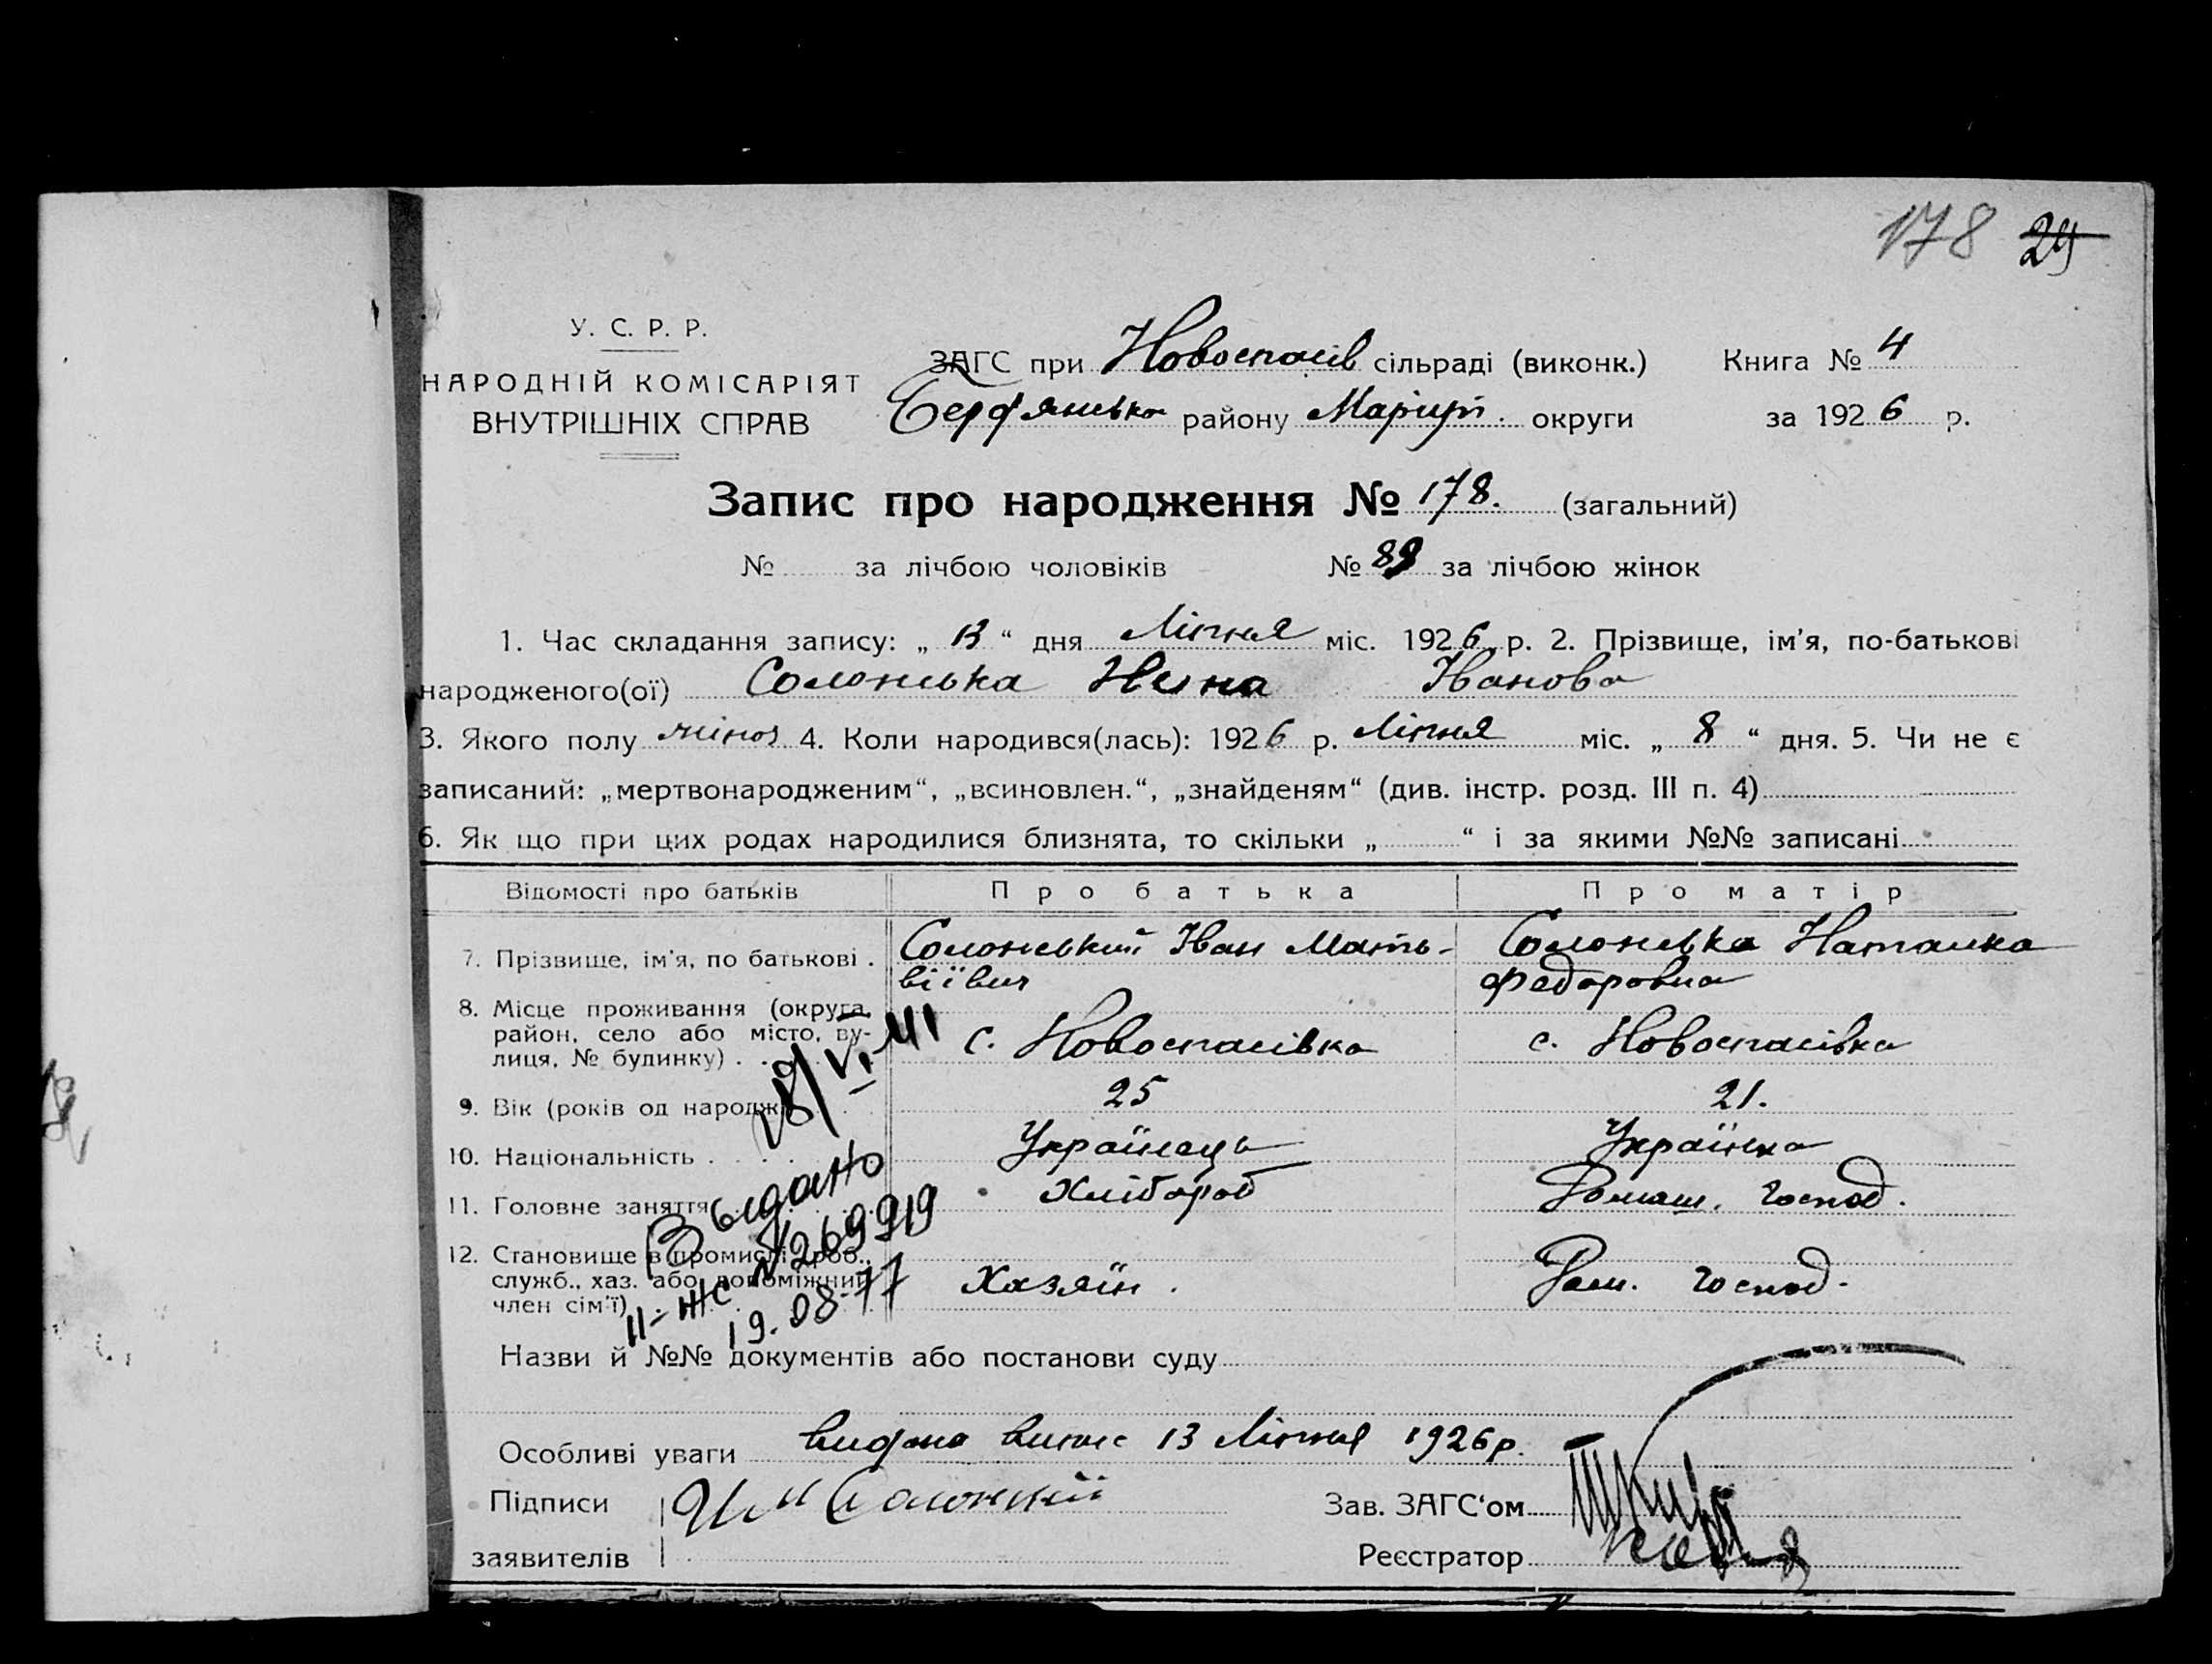 178 24
У. С. Р. Р.
НАРОДНІЙ КОМІСАРІЯТ
ВНУТРІШНІХ СПРАВ
ЗАГС при Новоспасів сільраді (виконк.) Книга № 4
Бердянська району Маріуп. округи за 1926 р.
Запис про народження № 178. (загальний)
№ за лічбою чоловіків № 89 за лічбою жінок
1. Час складання запису: „ 13 “ дня Ліпня міс. 1926 р. 2. Прізвище, ім’я, по-батькові
народженого(ої) Солонська Нина Іванова
3. Якого полу жіноч 4. Коли народився(лась): 1926 р. Ліпня міс. „ 8 “ дня. 5. Чи не є
записаний: „мертвонародженим“, „всиновлен.“, „знайденям“ (див. інстр. розд. III п. 4)
6. Як що при цих родах народилися близнята, то скільки „ “ і за якими №№ записані
Відомості про батьків Про батька Про матір
7. Прізвище, ім’я, по батькові . Солонський Іван Мать-
віївич
Солонська Наталка
Федоровна
8. Місце проживання (округа,
район, село або місто, ву-
лиця, № будинку) . .
с. Новоспасівка с. Новоспасівка
9. Вік (років од народж 25 21.
10. Національність . Українець Українка
11. Головне заняття Хлібороб Домаш. Господ.
12. Становище в промислі роб.,
служб., хаз. або допоміжний
член сім’ї)
Хазяїн . Дом. Господ.
Выдано
II-ЖС №269919
19.08-77
Назви й №№ документів або постанови суду
Особливі уваги видана випис 13 Ліпня 1926 р.
Підписи И М Солонский Зав. ЗАГС‘ом
заявителів Реєстратор